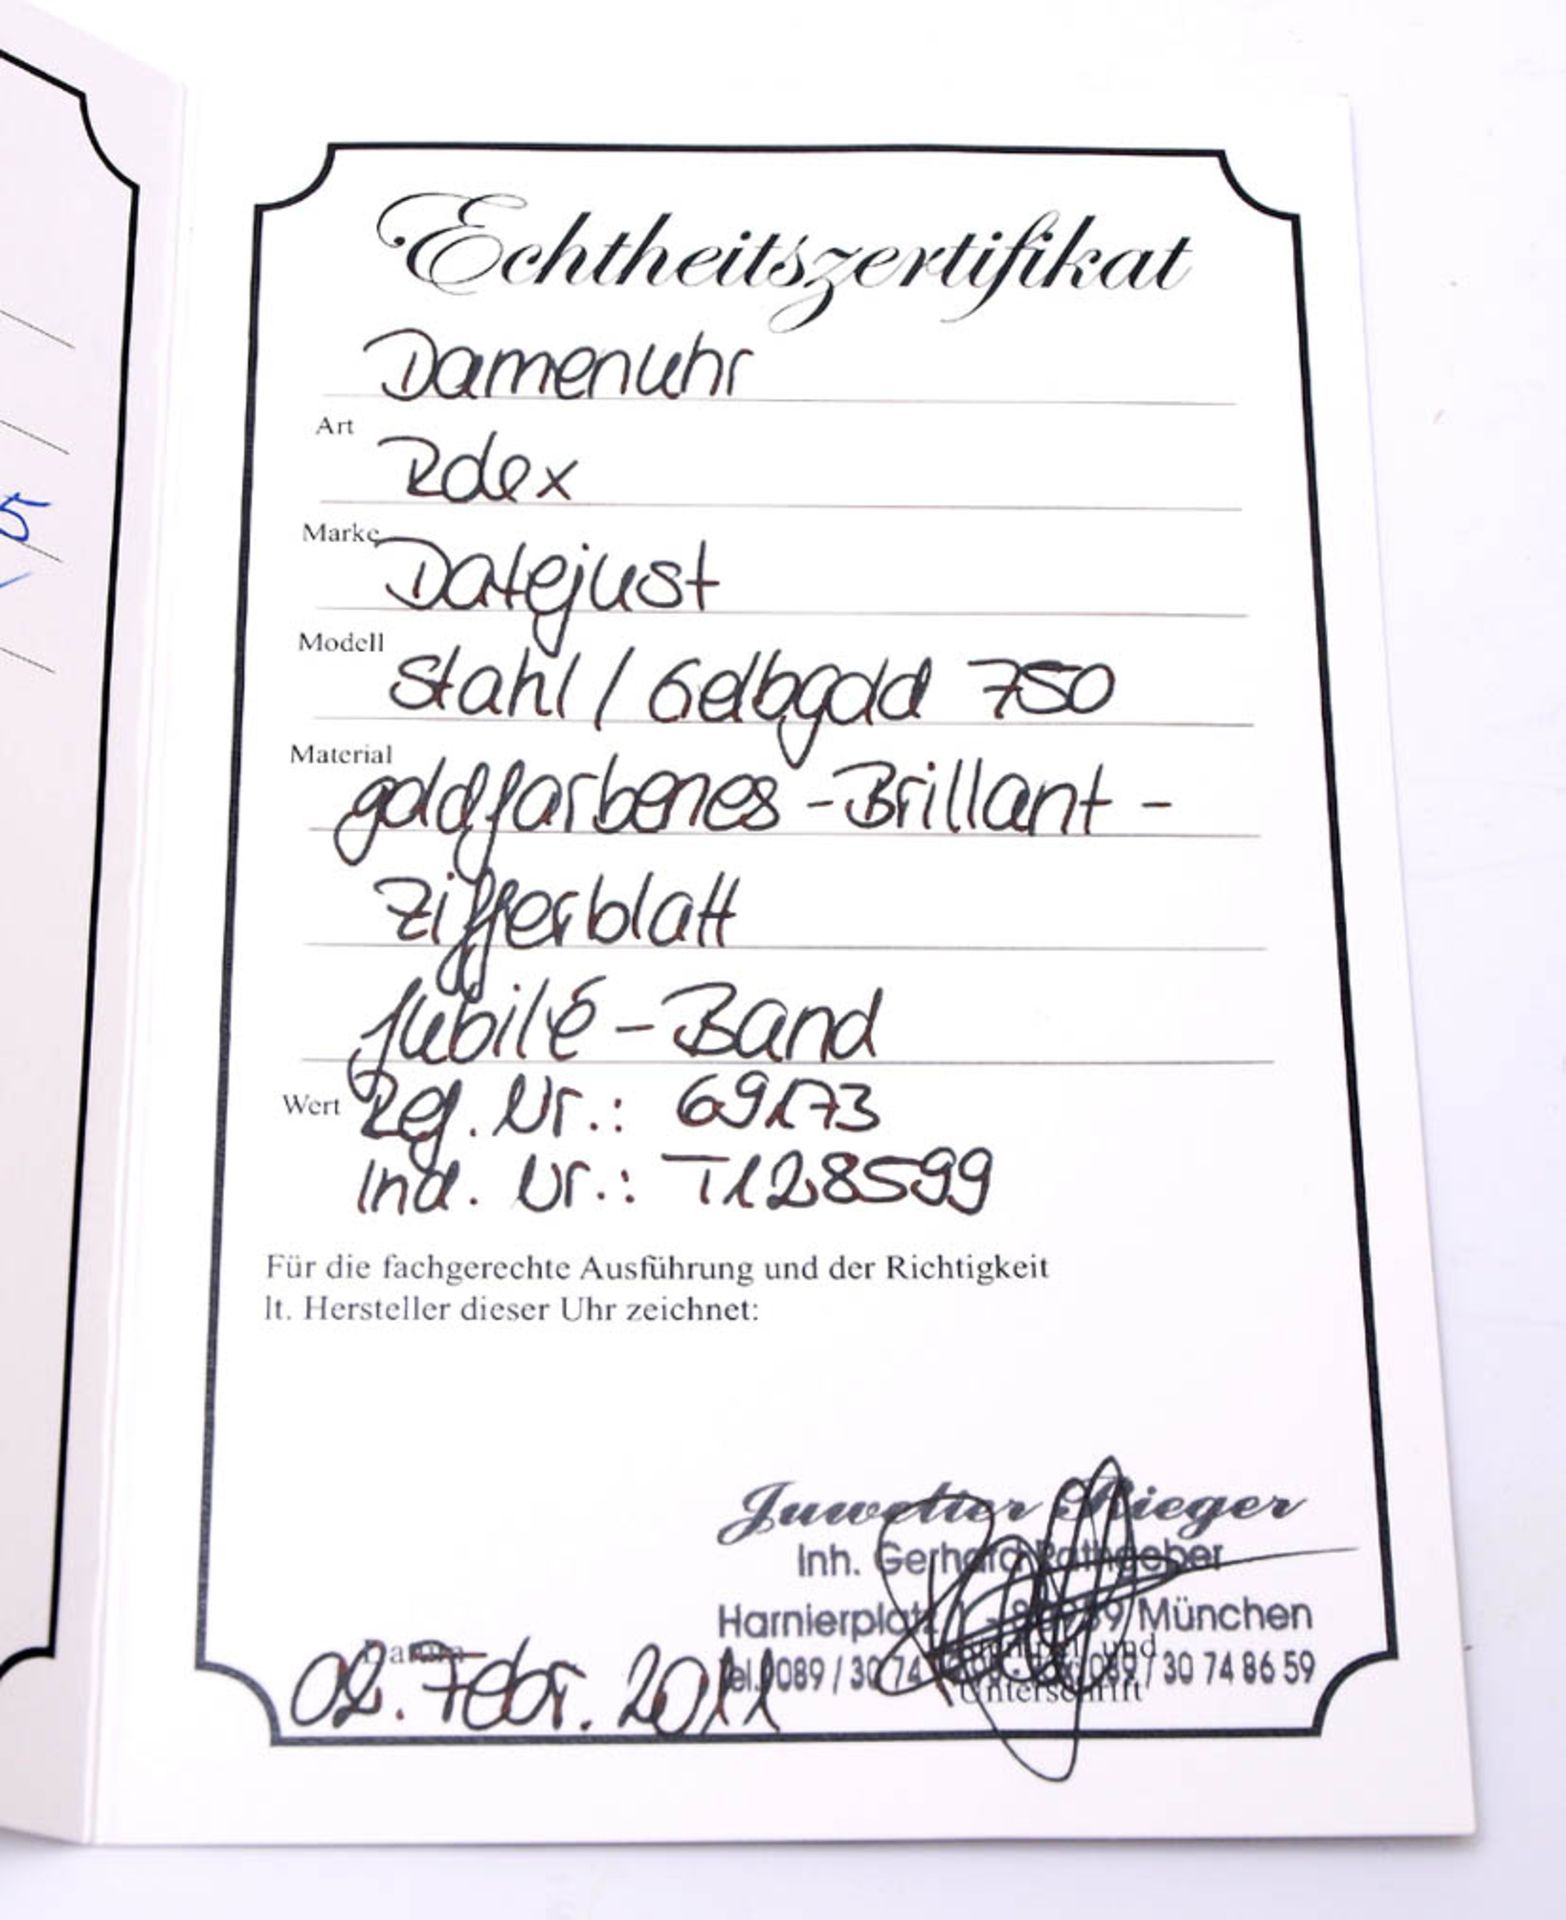 Echtheitszertifikat
Damenuhr
Art
Rolex
Marke
Datejust
Modell
Stahl / Gelbgold 750
Material
goldfarbenes - Brillant -
Zifferblatt
Jubilé - Band
Wert Reg. Nr.: 69173
Ind. Nr.: T128599
Für die fachgerechte Ausführung und der Richtigkeit
lt. Hersteller dieser Uhr zeichnet:
Juwelier Rieger
Inh. Gerhard Rathgeber
Harnierplatz 1 - München
Datum und
02. Febr. 2011 Tel. 089 / 30 74 089 / 30 74 86 59
Unterschrift
5